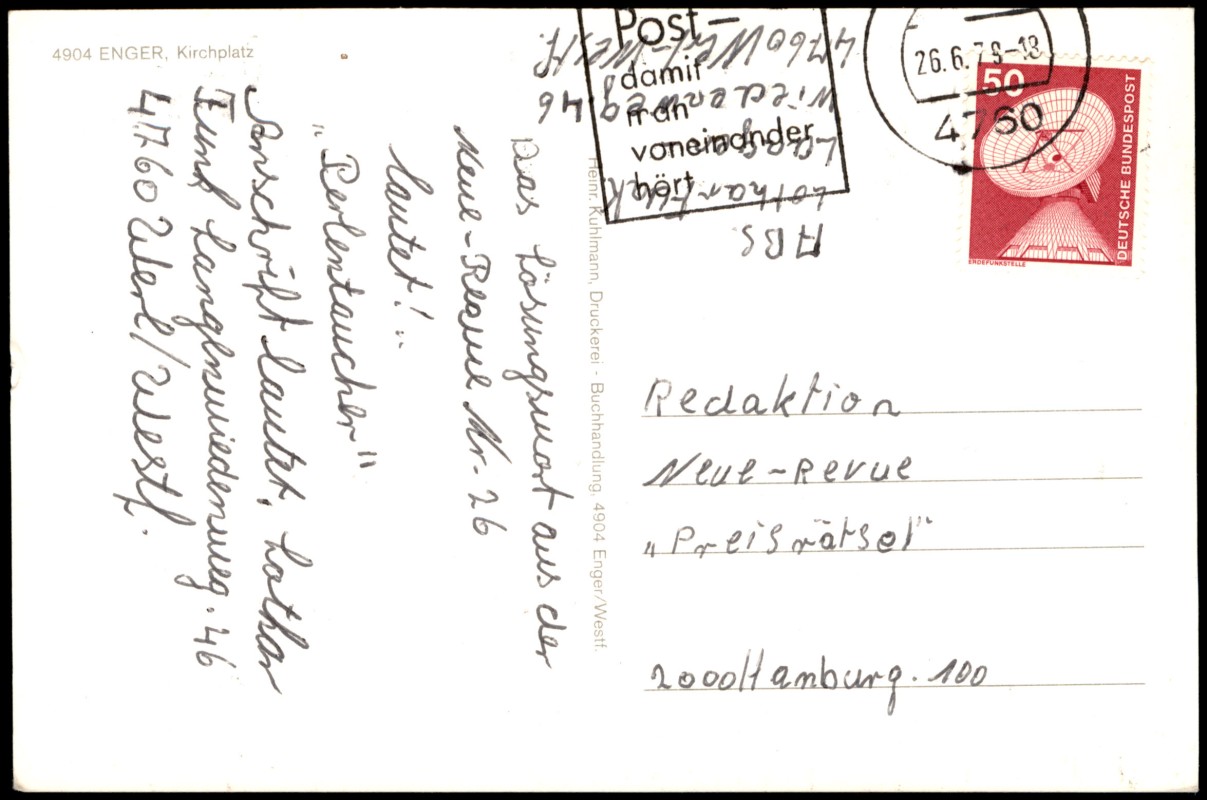 4904 ENGER, Kirchplatz
Das Lösungswort aus der
Neue-Revue Nr. 26
lautet!..
"Perlentaucher"
Anschrift lautet, Lothar
Funk Langenwiedenweg. 46
4760 Werl/Westf.
Heinr. Kuhlmann, Druckerei - Buchhandlung, 4904 Enger/Westf.
ABS.
Lothar Funk
wiedenweg 46
4760 Werl-Westf.
Post-
damit
man
voneinander
hört
26.6.78-18
4760
50
DEUTSCHE BUNDESPOST
ERDEFUNKSTELLE
Redaktion
Neue-Revue
"Preisrätsel"
2000 Hamburg. 100